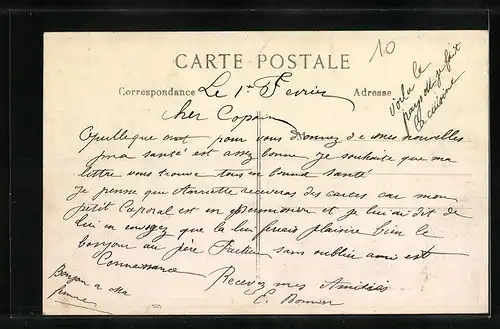 10
CARTE POSTALE
Correspondance Le 1er Fevrier Adresse
Voila le
pays ou je fait
la cuisine
Cher Copain
Quelleque mot pour vous donnez de mes nouvelles
ma santé est assez bonne je souhaite que ma
lettre vous trouve tous en bonne santé
Je pense que Henriette receveras des cartes car mon
petit Caporal est en permission et je lui ai dit de
lui en envoyez que la lui ferais plaisire bien le
bonjour au père sans oublier ami est
Connaissance
Recevez mes Amitiés
E.
Bonjour a Ma
femme